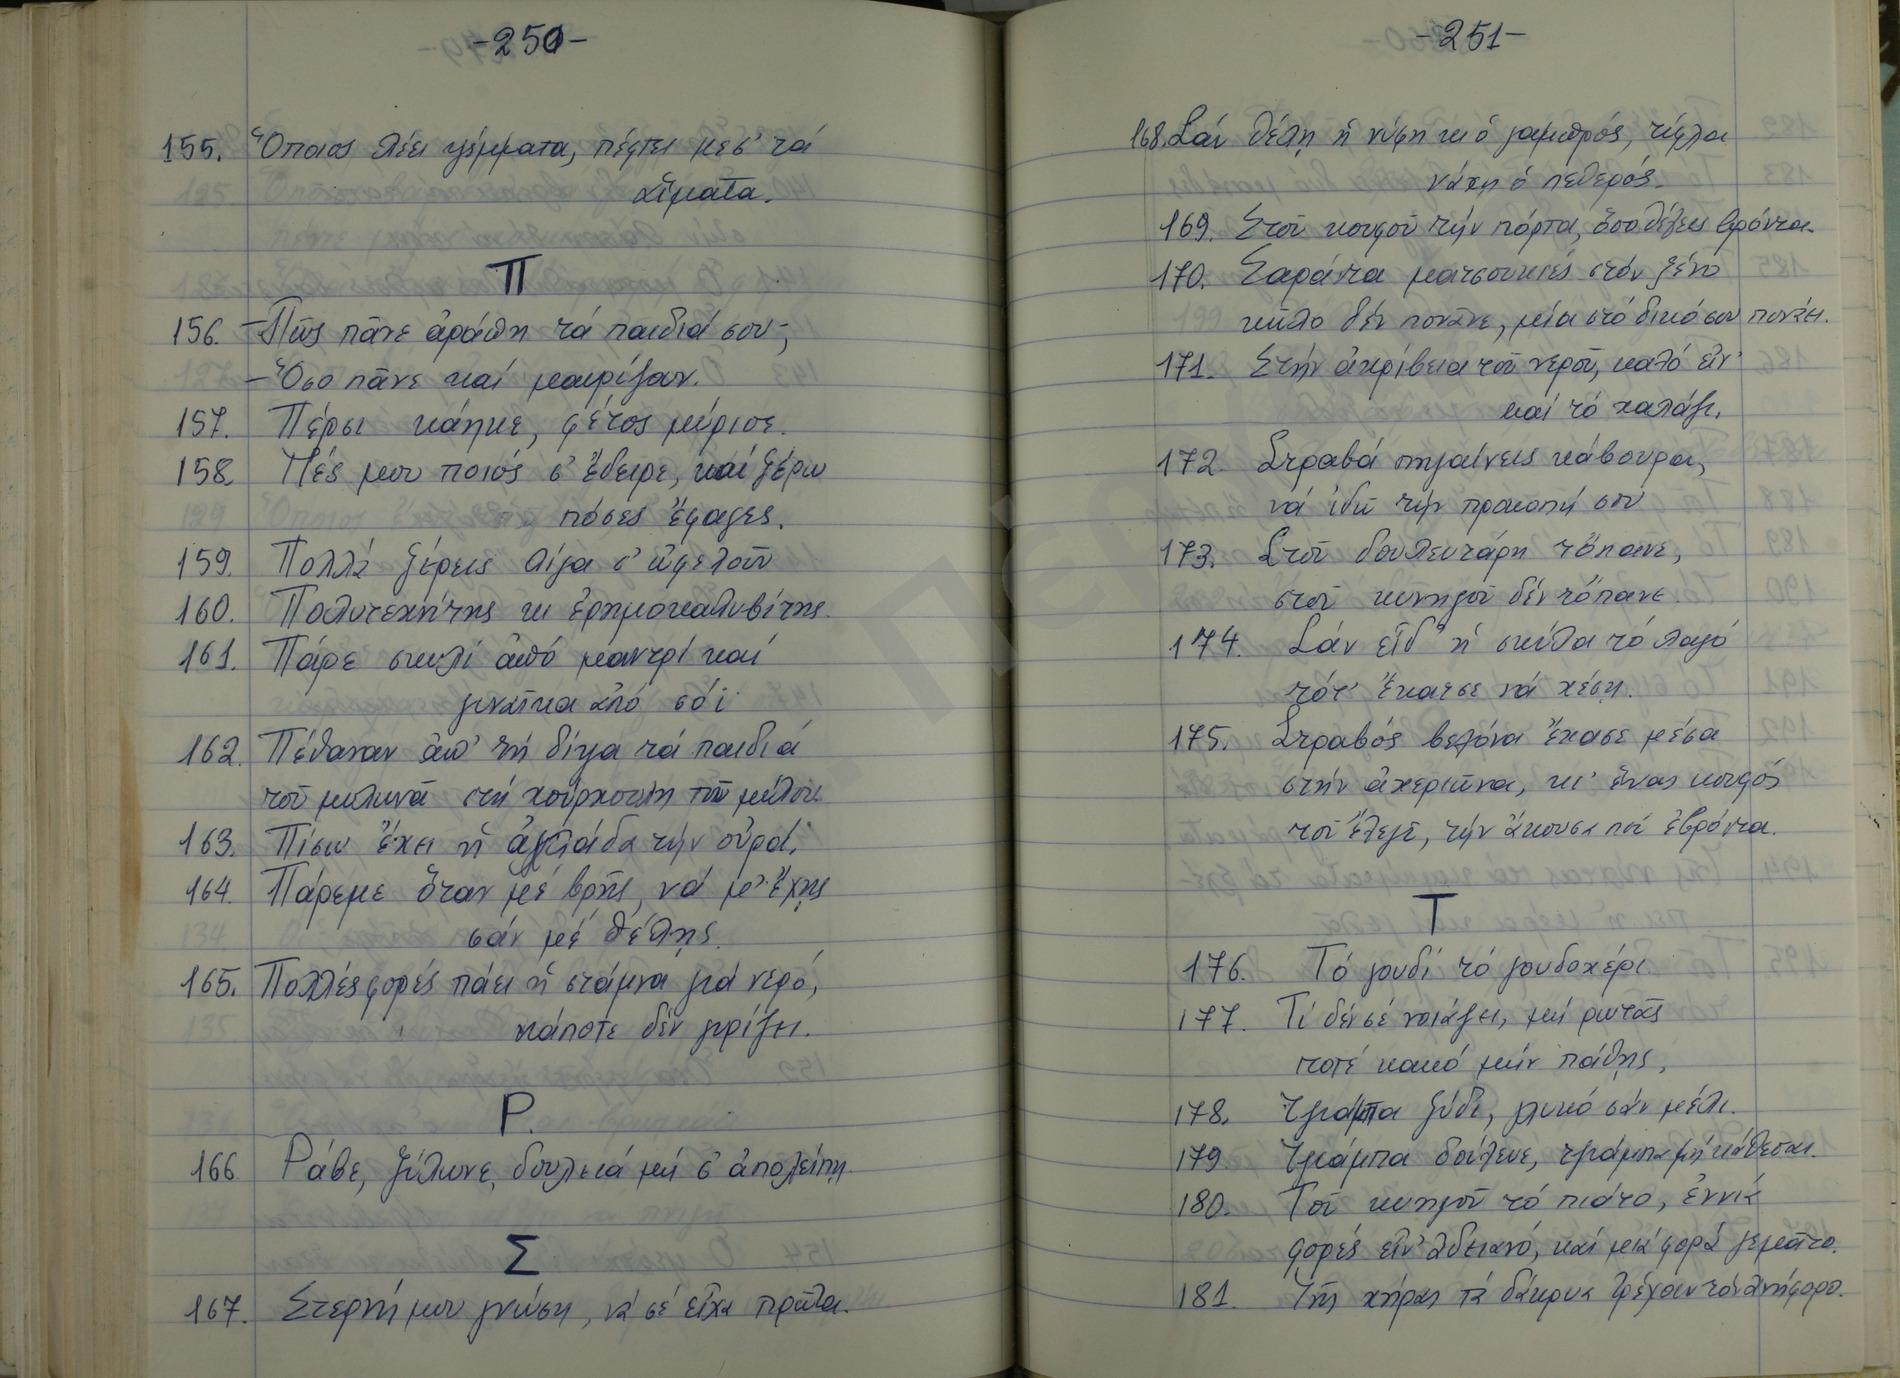 -250-
155. Ὅποιος λέει ψέμματα, πέφτει μεσ' τά
αἵματα.
Π
156. -Πῶς πᾶνε ἀράπη τά παιδιά σου-;
-Ὅσο πᾶνε καί μαυρίζουν.
157. Πέρσι κάηκε, φέτος μύρισε.
158. Πές μου ποιός σ' ἔδειρε, καί ξέρω
πόσες ἔφαγες.
159. Πολλά ξέρεις λίγα σ' ὠφελοῦν
160. Πολυτεχνίτης κι ἐρημοκαλυβίτης.
161. Πάρε σκυλί ἀπό μαντρί καί
γυναῖκα ἀπό σόϊ
162. Πέθαναν ἀπ' τή δίψα τά παιδιά
τοῦ μυλωνᾶ στή χούρχουλη τοῦ μύλου
163. Πίσω ἔχει ἡ ἀχλάδα τήν οὐρά.
164. Πάρεμε ὅταν μέ βρῆς, νά μ' ἔχῃς
σάν μέ θέλῃς.
165. Πολλές φορές πάει ἡ στάμνα γιά νερό,
κάποτε δέν γυρίζει.
Ρ.
166 Ράβε, ξύλωνε, δουλειά μή σ' ἀπολείπῃ.
Σ
167. Στερνή μου γνώση, νά σέ εἶχα πρῶτα.
-251-
168. Σάν θέλῃ ἡ νύφη κι ὁ γαμπρός, τύφλα
νάχῃ ὁ πεθερός.
169. Στοῦ κουφοῦ τήν πόρτα, ὅσο θέλεις βρόντα.
170. Σαράντα ματσουκιές στόν ξένο
κῶλο δέν πονᾶνε, μία στό δικό σου πονάει.
171. Στήν ἀκρίβεια τοῦ νεροῦ, καλό εἶν'
καί τό χαλάζι.
172. Στραβά πηγαίνεις κάβουρα,
νά ἰδῶ τήν προκοπή σου
173. Στοῦ δουλευτάρη τὄπανε,
στοῦ κυνηγοῦ δέν τὄπανε.
174. Σάν εἶδ' ἡ σκύλα τό λαγό
τότ' ἔκατσε νά χέσῃ.
175. Στραβός βελόνα ἔχασε μέσα
στήν ἀχεριῶνα, κι' ἕνας κουφός
τοῦ ἔλεγε, τήν ἄκουσα πού ἐβρόντα.
Τ
176. Τό γουδί τό γουδοχέρι
177. Τί δέν σέ νοιάζει, μή ρωτᾶς
ποτέ κακό μήν πάθῃς.
178. Τζιάμπα ξύδι, γλυκό σάν μέλι.
179 Τζιάμπα δούλευε, τζιάμπα μή κάθεσαι.
180. Τοῦ κυνηγοῦ τό πιάτο, ἐννιά
φορές εἶν' ἀδειανό, καί μιά φορά γεμᾶτο.
181. Τῆς χήρας τά δάκρυα τρέχουν τόν ἀνήφορο.